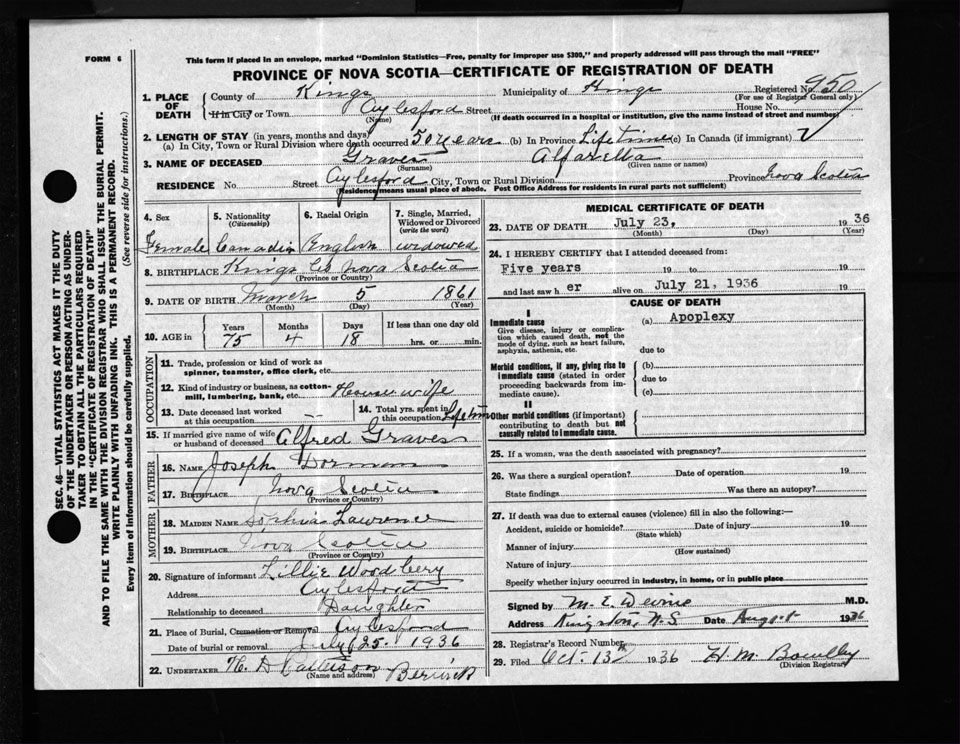 FORM 6
This form if placed in an envelope, marked "Dominion Statistics—Free, penalty for improper use $300," and properly addressed will pass through the mail "FREE"
PROVINCE OF NOVA SCOTIA—CERTIFICATE OF REGISTRATION OF DEATH
SEC. 46—VITAL STATISTICS ACT MAKES IT THE DUTY
OF THE UNDERTAKER OR PERSON ACTING AS UNDER-
TAKER TO OBTAIN ALL THE PARTICULARS REQUIRED
IN THE "CERTIFICATE OF REGISTRATION OF DEATH"
AND TO FILE THE SAME WITH THE DIVISION REGISTRAR WHO SHALL ISSUE THE BURIAL PERMIT.
WRITE PLAINLY WITH UNFADING INK. THIS IS A PERMANENT RECORD.
Every item of Information should be carefully supplied. (See reverse side for instructions.)
1. PLACE OF DEATH County of Kings Municipality of Kings Registered No. 950
(For use of Registrar General only)
If in City or Town Aylesford Street House No.
(Name) (If death occurred in a hospital or institution, give the name instead of street and number)
2. LENGTH OF STAY (in years, months and days)
(a) In City, Town or Rural Division where death occurred 50 years (b) In Province Lifetime (c) In Canada (if immigrant)
3. NAME OF DECEASED Graves Alfaretta
(Surname) (Given name or names)
RESIDENCE No. Street Aylesford City, Town or Rural Division Province Nova Scotia
(Residence means usual place of abode. Post Office Address for residents in rural parts not sufficient)
4. Sex Female
5. Nationality (Citizenship) Canadian
6. Racial Origin English
7. Single, Married, Widowed or Divorced (write the word) widowed
8. BIRTHPLACE Kings Co Nova Scotia
(Province or Country)
9. DATE OF BIRTH March 5 1861
(Month) (Day) (Year)
10. AGE in Years 75 Months 4 Days 18 If less than one day old hrs. or min.
OCCUPATION
11. Trade, profession or kind of work as spinner, teamster, office clerk, etc.
12. Kind of industry or business, as cotton-mill, lumbering, bank, etc. Housewife
13. Date deceased last worked at this occupation
14. Total yrs. spent in this occupation Lifetime
15. If married give name of wife or husband of deceased Alfred Graves
FATHER
16. NAME Joseph Dorman
17. BIRTHPLACE Nova Scotia
(Province or Country)
MOTHER
18. MAIDEN NAME Sophia Lawrence
19. BIRTHPLACE Nova Scotia
(Province or Country)
20. Signature of informant Lillie Woodbery
Address Aylesford
Relationship to deceased Daughter
21. Place of Burial, Cremation or Removal Aylesford
Date of burial or removal July 25 1936
22. UNDERTAKER Berwick
(Name and address)
MEDICAL CERTIFICATE OF DEATH
23. DATE OF DEATH July 23, 1936
(Month) (Day) (Year)
24. I HEREBY CERTIFY that I attended deceased from:
Five years 19 to 19
and last saw h er alive on July 21, 1936 19
CAUSE OF DEATH
I
Immediate cause
Give disease, injury or complication which caused death, not the mode of dying, such as heart failure, asphyxia, asthenia, etc.
(a) Apoplexy
due to
Morbid conditions, if any, giving rise to immediate cause (stated in order proceeding backwards from immediate cause).
(b)
due to
(c)
II
Other morbid conditions (if important) contributing to death but not causally related to immediate cause.
25. If a woman, was the death associated with pregnancy?
26. Was there a surgical operation? Date of operation 19
State findings Was there an autopsy?
27. If death was due to external causes (violence) fill in also the following:—
Accident, suicide or homicide? Date of injury 19
(State which)
Manner of injury
(How sustained)
Nature of injury
Specify whether injury occurred in industry, in home, or in public place
Signed by M. E. M.D.
Address Kingston, N.S. Date August 1936
28. Registrar's Record Number
29. Filed Oct. 13th 1936 H. M.
(Division Registrar)